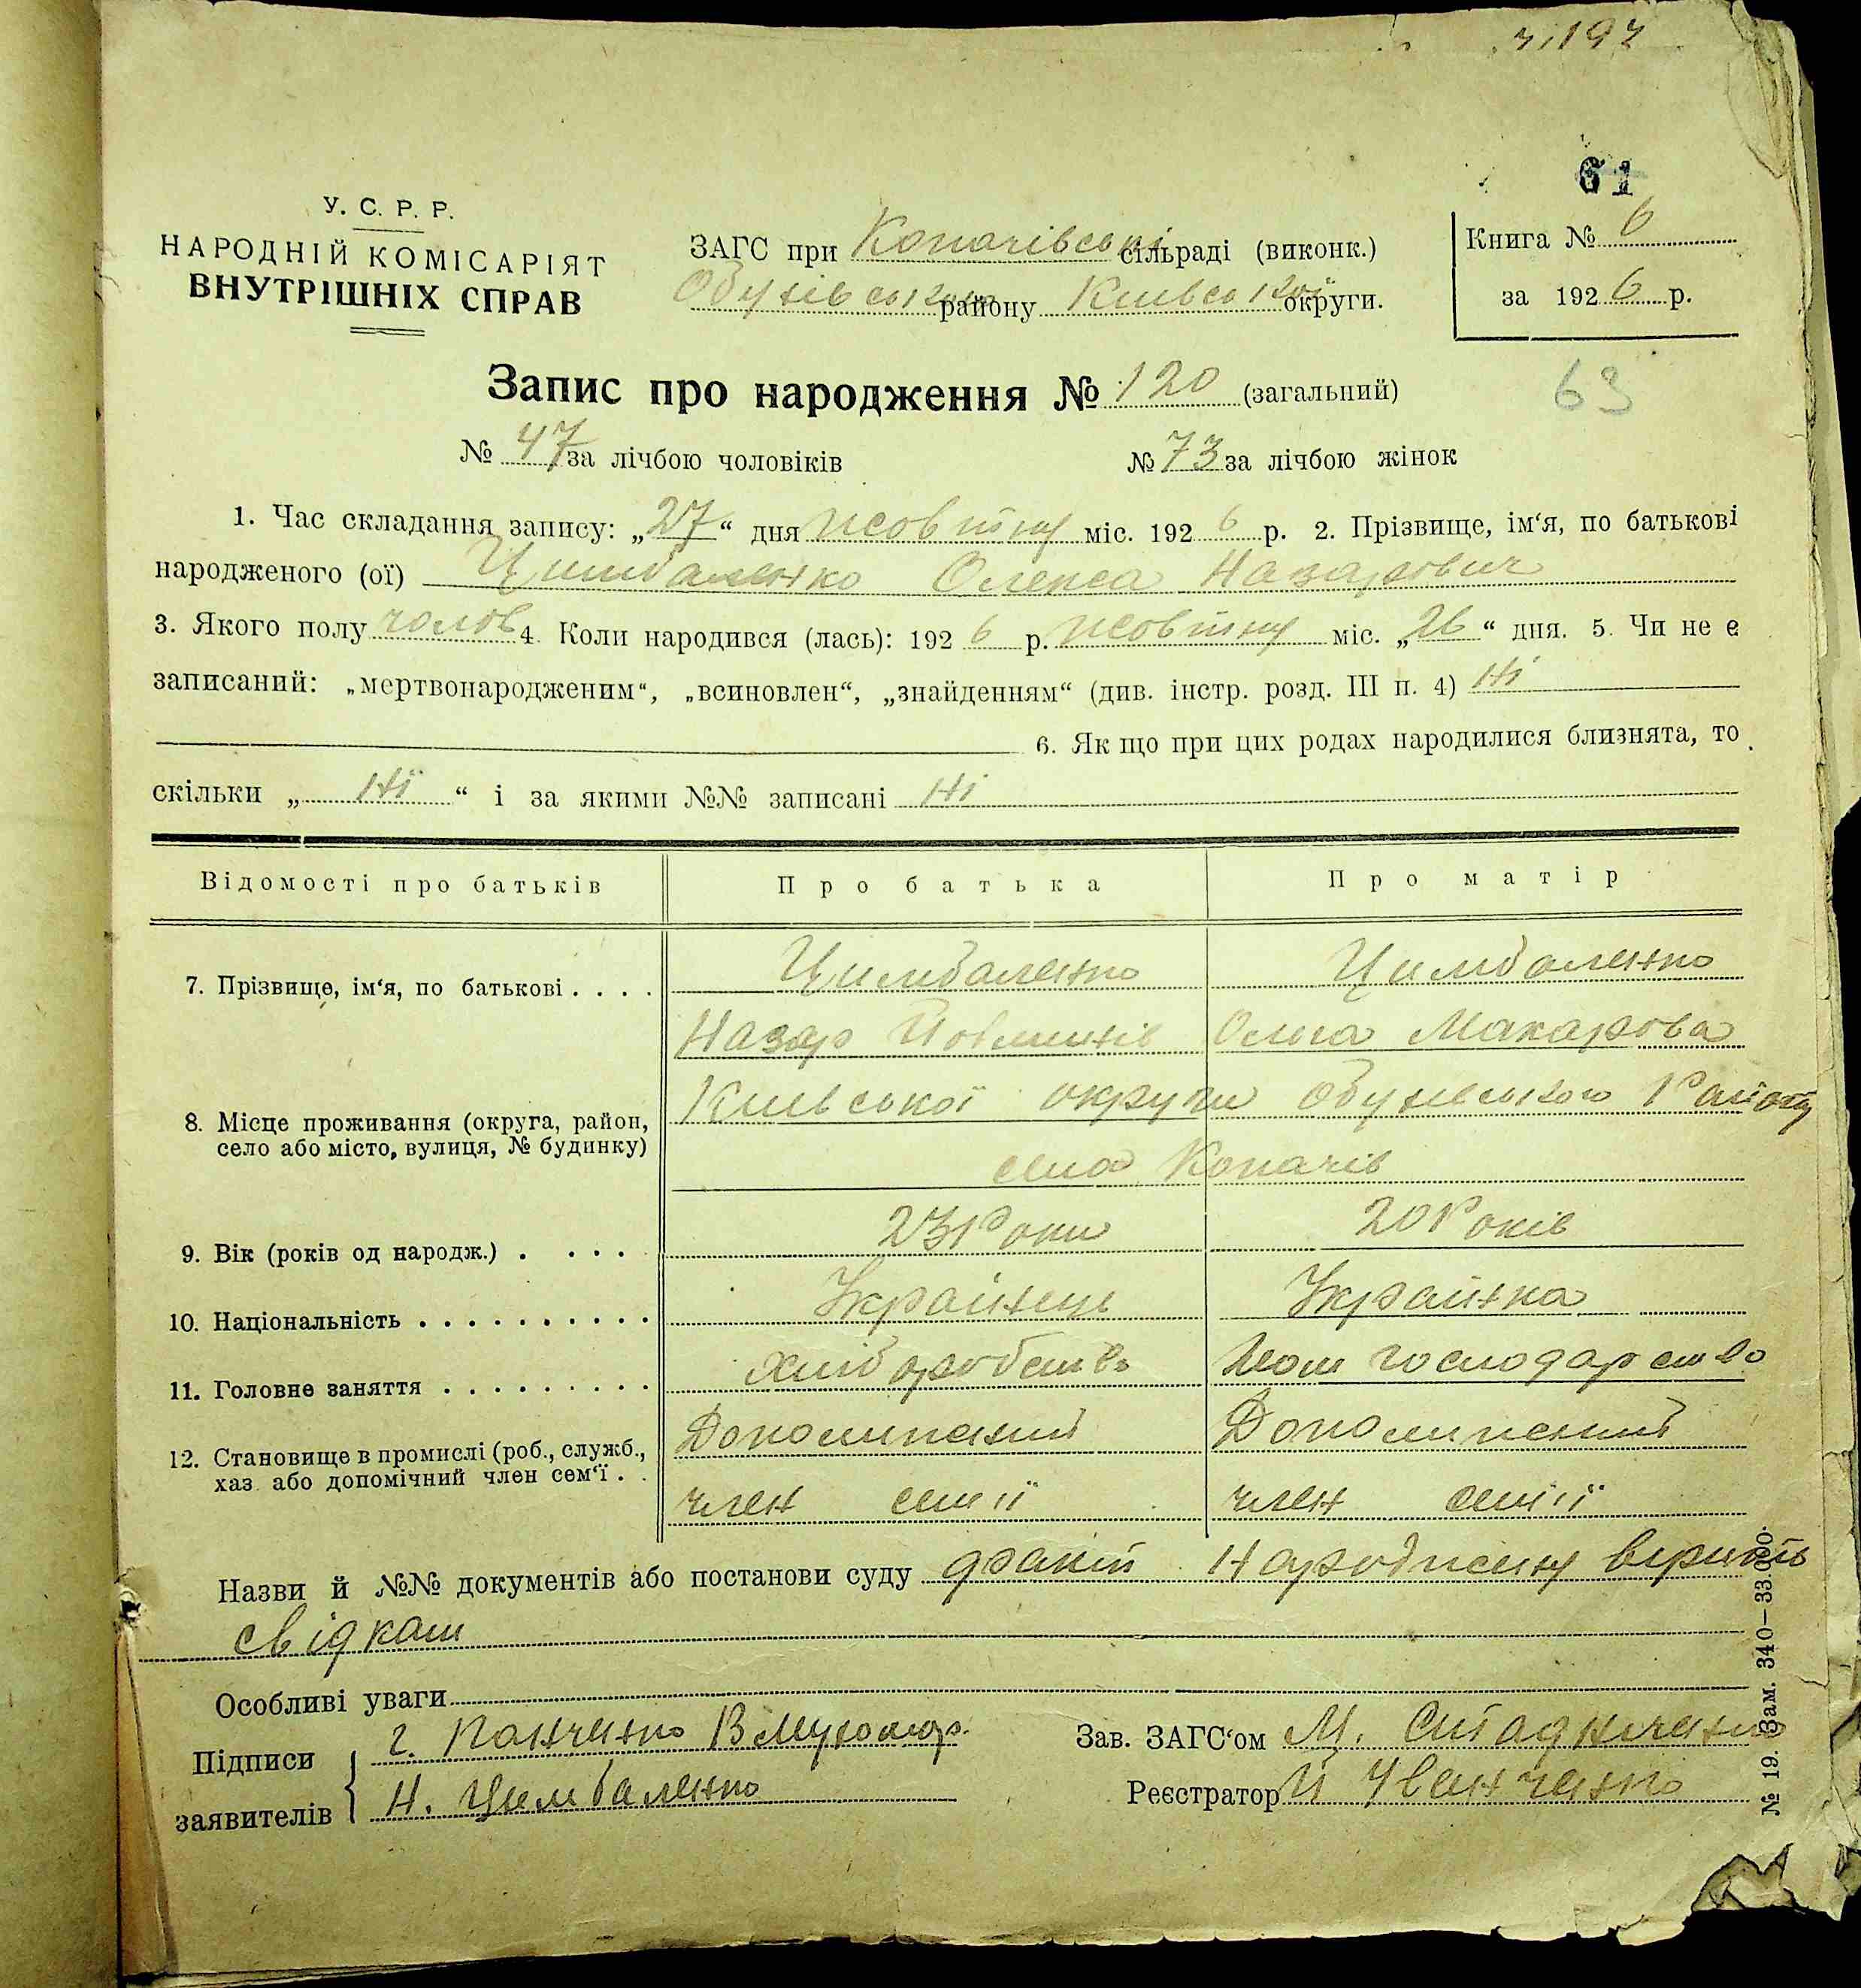 61
У. С. Р. Р.
НАРОДНІЙ КОМІСАРІЯТ
ВНУТРІШНІХ СПРАВ
ЗАГС при Копачівські сільраді (виконк.)
району Київської округи.
Книга № 6
за 1926 р.
Запис про народження № 120 (загальний)
63
№ 47 за лічбою чоловіків № 73 за лічбою жінок
1. Час складання запису: „27“ дня жовтня міс. 1926 р. 2. Прізвище, ім‘я, по батькові
народженого (ої) Цимбаленко Олекса Назарович
3. Якого полу чолов 4. Коли народився (лась): 1926 р. жовтня міс. „26“ дня. 5. Чи не є
записаний: „мертвонародженим“, „всиновлен“, „знайденням“ (див. інстр. розд. III п. 4) Ні
6. Як що при цих родах народилися близнята, то
скільки „ Ні “ і за якими №№ записані Ні
Відомості про батьків Про батька Про матір
7. Прізвище, ім‘я, по батькові . . . . Цимбаленко Цимбаленко
Назар Ольга Макарова
8. Місце проживання (округа, район,
село або місто, вулиця, № будинку)
Київської округи Обухівського Району
села Копачів
9. Вік (років од народж.) . . . . 23 Роки 20 Років
10. Національність . . . . . . . . . . Українець Українка
11. Головне заняття . . . . . . . . . хліборобство Дом господарство
12. Становище в промислі (роб., служб.,
хаз. або допомічний член сем‘ї . .
член сем'ї член сем'ї
Назви й №№ документів або постанови суду факт Народження
свідкам
Особливі уваги
Підписи
заявителів
Панченко
Н. Цимбаленко
Зав. ЗАГС‘ом М.
Реєстратор Іванченко
№ 19. Зам. 340—33.000.